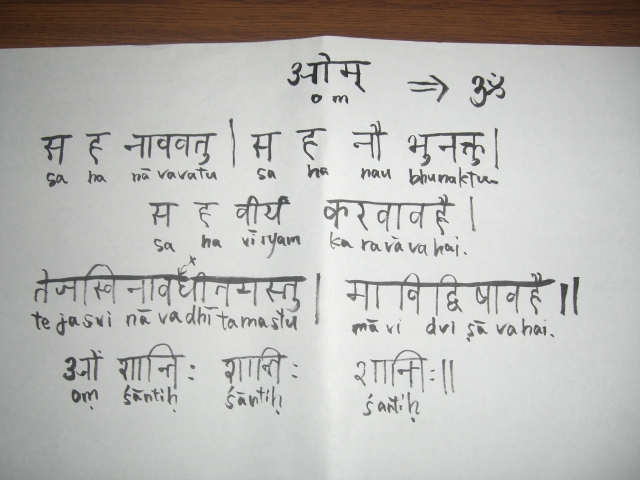 ओम् ⇒ ॐ
om
स ह नाववतु | स ह नौ भुनक्तु |
sa ha nāvavatu sa ha nau bhunaktu
स ह वीर्यं करवावहै |
sa ha vīryam karavāvahai.
तेजस्वि नावधीतमस्तु | मा विद्विषावहै ||
tejasvi nāvadhītamastu mā vi dvi ṣāvahai.
ओं शान्तिः शान्तिः शान्तिः ||
oṃ śāntiḥ śāntiḥ śāntiḥ